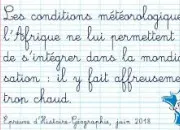 Les conditions météorologique
l'Afrique ne lui permettent
de s'intégrer dans la mondia
sation : il y fait affreuseme
trop chaud.
Épreuve d'Histoire-Géographie, juin 2018